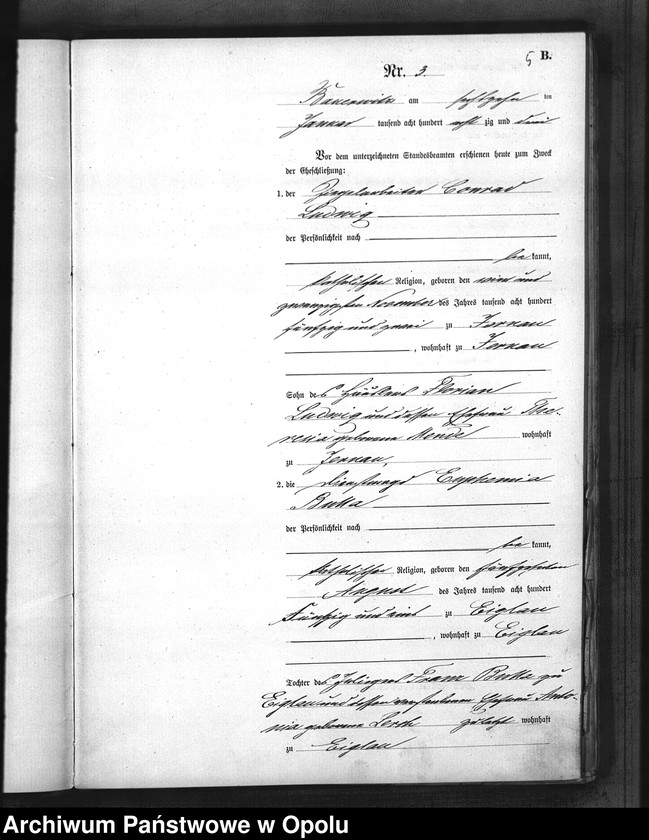 5 B.
Nr. 3.
Bauerwitz am sechszehn ten
Januar tausend acht hundert acht zig und drei
Vor dem unterzeichneten Standesbeamten erschienen heute zum Zweck
der Eheschließung:
1. der Ziegelarbeiter Conrad
Ludwig
der Persönlichkeit nach
be kannt,
katholischer Religion, geboren den vier und
zwanzigsten November des Jahres tausend acht hundert
fünfzig und zwei zu Jernau
, wohnhaft zu Jernau
Sohn des Häuslers Florian
Ludwig und dessen Ehefrau The-
resia geborene Mende wohnhaft
zu Jernau,
2. die Dienstmagd Euphemia
Butka
der Persönlichkeit nach
be kannt,
katholischer Religion, geboren den
August des Jahres tausend acht hundert
Fünfzig und eins zu Eiglau
, wohnhaft zu Eiglau
Tochter des Franz Butka zu
Eiglau und dessen verstorbenen Ehefrau Anto-
nia geborene zuletzt wohnhaft
zu Eiglau
Archiwum Państwowe w Opolu